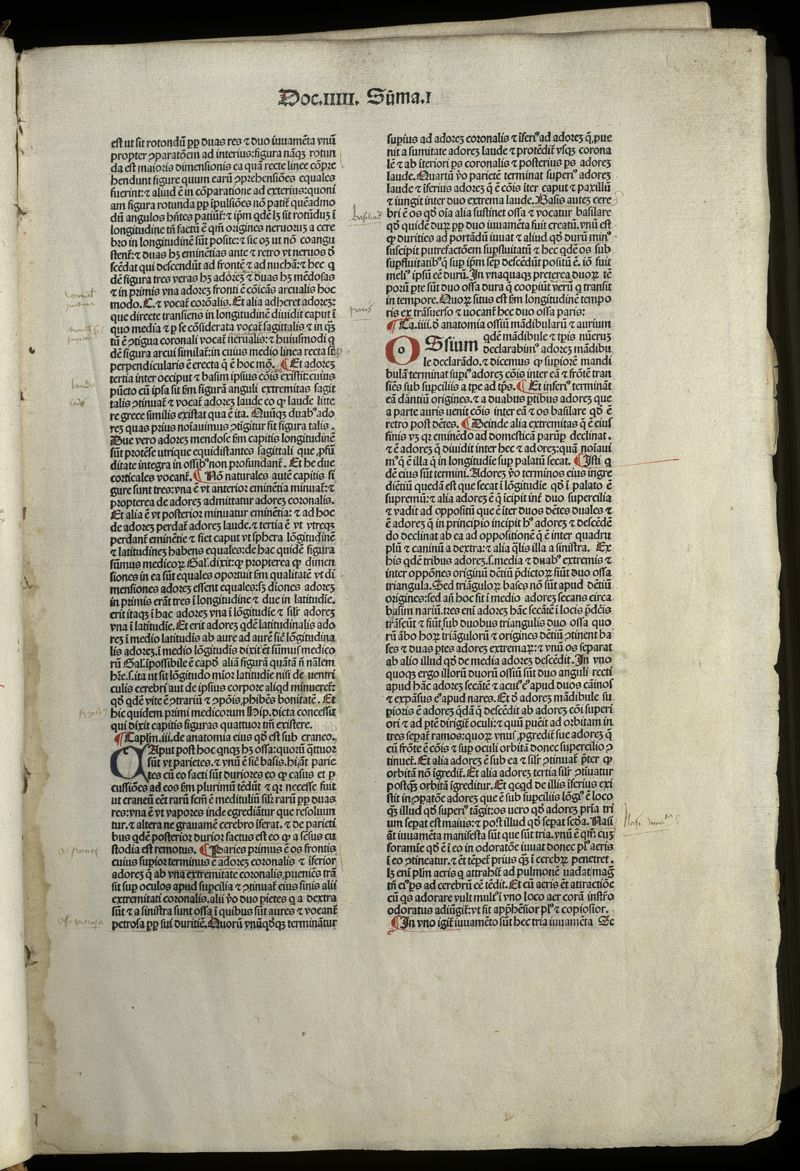 Doc.IIIII. Sũma.I
est ut sit rotondũ ꝓp duas res ⁊ duo iuuamẽta vnũ
propter ꝯparatõem ad interius: figura nãqꝫ rotun
da est maioris dimensionis ea quã recte linee cõpre
hendunt figure quum earũ ꝯprehẽsiões equales
fuerint: ⁊ aliud ẽ in cõparatione ad exterius: quoni
am figura rotunda ꝓp ĩpulsiões nõ patit᷑ quẽadmo
dũ angulos hñtes patiũt᷑: ⁊ ipm qdẽ lꝫ sit rotũdũ ĩ
longitudine tñ factũ ẽ qm̃ origines neruoꝝ a cere
bro in longitudinẽ sũt posite: ⁊ sic oꝫ ut nõ coangu
stent᷑: ⁊ duas hꝫ eminẽtias ante ⁊ retro vt neruos
scẽdat qui descendũt ad frontẽ ⁊ ad nuchã: ⁊ hec q
dẽ figura tres veras hꝫ adoreꝫ ⁊ duas hꝫ mẽdosas
⁊ in primis vna adoreꝫ fronti ẽ cõicãs arcualis hoc
modo. C. ⁊ vocat᷑ corõalis. Et alia adheret adoreꝫ:
que directe transiens in longitudinẽ diuidit caput ĩ
quo media ⁊ p se cõsiderata vocat᷑ sagittalis ⁊ in qꝫ
tũ ẽ ꝯtigua coronali vocat᷑ nerualis: ⁊ huiusmodi q
dẽ figura arcui similat᷑: in cuius medio linea recta sẽp
perpendicularis ẽ erecta q̃ ẽ hoc mõ. Et adoreꝫ
tertia inter occiput ⁊ basim ipsius cõis existit: cuius
pũcto cũ ipsa sit fm figurã anguli extremitas sagit
talis ꝯtinuat᷑ ⁊ vocat᷑ adoreꝫ laude eo q̃ laude litte
re grece similis existat qua ẽ ita. Quũqꝫ duabꝰ ado
reꝫ quas prius notauimus ꝯtigitur sit figura talis.
Due vero adoreꝫ mendose fm capitis longitudinẽ
sũt protẽse utrique equidistantes sagittali que ꝓfũ
ditate integra in ossibꝰ non profundant᷑. Et he due
corticales vocant᷑. Nõ naturales autẽ capitis fi
gure sunt tres: vna ẽ vt anterior eminẽtia minuat᷑: ⁊
propterea de adoreꝫ admittatur adoreꝫ coronalis.
Et alia ẽ vt posterior minuatur eminẽtia: ⁊ ad hoc
de adoreꝫ perdat᷑ adoreꝫ laude. ⁊ tertia ẽ vt vtreqꝫ
perdant᷑ eminẽtie ⁊ fiet caput vt sphera lõgitudinẽ
⁊ latitudineꝫ habens equales: de hac quidẽ figura
sũmus medicoꝝ Gal. dixit: q̃ propterea q̃ dimen
siones in ea sũt equales oportuit fm qualitatẽ vt di
mensiones adoreꝫ essent equales: sꝫ diones adoreꝫ
in primis erãt tres ĩ longitudine ⁊ due in latitudie.
erit itaqꝫ ĩ hac adoreꝫ vna ĩ lõgitudie ⁊ silr adoreꝫ
vna ĩ latitudie. Et erit adoreꝫ qdẽ latitudinalis ado
reꝫ ĩ medio latitudis ab aure ad aurẽ sic lõgitudina
lis adoreꝫ. ĩ medio lõgitudis dixit ẽt sũmus medico
rũ Gal. ĩpossibile ẽ capđ aliã figurã quãtã ñ nãlem
hr̃e. s. ita ut sit lõgitudo mior latitudie nisi de ventri
culis cerebri aut de ipsius corpore aliqđ minueret᷑:
qđ qdẽ vite ẽ ꝯtrariũ ⁊ ꝯpõis ꝓhibẽs bonitatẽ. Et
hic quidem primi medicorum Hip. dicta concessit
qui dixit capitis figuras quattuor tm̃ existere.
Caplm. iii. de anatomia eius qđ est sub craneo.
CAput post hoc qnqꝫ hꝫ ossa: quorũ q̃ttuor
sũt vt parietes. ⁊ vnũ ẽ sic basis. hiãt᷑ parie
tes cũ eo facti sũt duriores eo q̃ casus et ꝑ
cussiões ad eos fm plurimũ tẽdũt ⁊ qꝛ necesse fuit
ut craneũ eẽt rarũ scm̃ ẽ meditulliũ silr rarũ ꝓp duas
res: vna ẽ vt vapores inde egrediãtur que resoluun
tur. ⁊ altera ne grauamẽ cerebro ĩferat. ⁊ de parieti
bus qdẽ posterior durior factus est eo q̃ a sẽsus cu
stodia est remotus. Paries primus ẽ os frontis
cuius suꝑior terminus ẽ adoreꝫ coronalis ⁊ ĩferior
adoreꝫ q̃ ab vna extremitate coronalis. pueniẽs trã
sit sup oculos apud supcilia ⁊ ꝯtinuat᷑ eius finis alii
extremitati coronalis. alii ṽo duo pietes q̃ a dextra
sũt ⁊ a sinistra sunt ossa ĩ quibus sũt aures ⁊ vocant᷑
petrosa ꝓp sui duritiẽ. Quorũ vnũqđqꝫ terminãtur
supius ad adoreꝫ coronalis ⁊ ĩferiꝰ ad adoreꝫ q̃. pue
nit a sumitate adoreꝫ laude ⁊ protẽdit᷑ vsqꝫ corona
lẽ ⁊ ab ĩteriori ps coronalis ⁊ posterius ps adoreꝫ
laude. Quartũ ṽo parietẽ terminat superiꝰ adoreꝫ
laude ⁊ ĩferius adoreꝫ q̃ ẽ cõis iter caput ⁊ paxillũ
⁊ iungit inter duo extrema laude. Basis auteꝫ cere
bri ẽ os qđ oĩa alia sustinet ossa ⁊ vocatur basilare
qđ quidẽ durꝝ ꝓp duo iuuamẽta fuit creatũ. vnũ est
q̃ durities ad portãdũ iuuat ⁊ aliud qđ durũ minꝰ
suscipit putrefactõem supfluitatũ ⁊ hec qdẽ os sub
supfluitatibꝰ q̃ sup ipm semꝑ descẽdũt positũ ẽ. iõ fuit
meliꝰ ipsũ eẽ durũ. In vnaquaqꝫ preterea duoꝝ tẽ
porũ pte sũt duo ossa dura q̃ coopiũt veꝝũ q̃ transit
in tempore. Quoꝝ situs est fm longitudinẽ tempo
ris ex trãsuerso ⁊ uocant᷑ hec duo ossa paris:
Ca. iiii. đ anatomia ossiũ mãdibularũ ⁊ aurium
OSsium qdẽ mãdibule ⁊ tpis nũeruꝫ
declarabimꝰ adoreꝫ mãdibu
le declarãdo. ⁊ dicemus q̃ supiorẽ mandi
bulã terminat supiꝰ adoreꝫ cõis inter eã ⁊ frõtẽ tran
siẽs sub supciliis a tpe ad tp̃s. Et inferiꝰ terminãt
eã dãntiũ origines. ⁊ a duabꝰ ptibus adoreꝫ que
a parte auris uenit cõis inter eã ⁊ os basilare qđ ẽ
retro post dẽtes. Deinde alia extremitas q̃ ẽ eius
finis vꝫ qꝛ eminẽdo ad domesticã parũp declinat.
⁊ ẽ adoreꝫ q̃ diuidit inter hec ⁊ adoreꝫ quã noiaui
mꝰ q̃ ẽ illa q̃ in longitudie sup palatũ secat. Isti q̃
dẽ eius sũt termini. Adoreꝫ ṽo terminos eius ingre
diẽtiũ quedã est que secat ĩ lõgitudie qđ ĩ palato ẽ
supremũ: ⁊ alia adoreꝫ ẽ q̃ ĩcipit int᷑ duo supercilia
⁊ vadit ad oppositũ que ẽ iter duos dẽtes duales ⁊
ẽ adoreꝫ q̃ in principio incipit hꝰ adoreꝫ ⁊ descẽdẽ
do declinat ab ea ad oppositionẽ q̃ ẽ inter quadru
plũ ⁊ caninũ a dextra: ⁊ alia q̃lis illa a sinistra. Ex
his qdẽ tribus adoreꝫ. s. media ⁊ duabꝰ extremis ⁊
inter oppõnes originũ dẽtiũ p̃dictoꝝ fiũt duo ossa
triangula. Sed triãguloꝝ bases nõ sũt apud dẽtiũ
origines: sed añ hoc fit ĩ medio adoreꝫ secans circa
basim nariũ. tres eni adoreꝫ hãc secãtẽ ĩ locis p̃dcis
trãseũt ⁊ fiũt sub duobus triangulis duo ossa quo
rũ ãbo hoꝝ triãgulorũ ⁊ origines dẽtiũ ꝯtinent ba
ses ⁊ duas ptes adoreꝫ extremaꝝ: ⁊ vnũ os separat
ab alio illud qđ de media adoreꝫ descẽdit. In vno
quoqꝫ ergo illorũ duorũ ossiũ sũt duo anguli recti
apud hãc adoreꝫ secãtẽ ⁊ acutꝰ eꝰ apud duos cãinos
⁊ expãsus eꝰ apud nares. Et đ adoreꝫ mãdibule su
piorĩs ẽ adoreꝫ qdã q̃ descẽdit ab adoreꝫ cõi superi
ori ⁊ ad ptẽ dirigit᷑ oculi: ⁊ quũ puẽit ad orbitam in
tres sepat᷑ ramos: quoꝝ vnusꝰ ꝓgredit᷑ sue adoreꝫ q̃
cũ frõte ẽ cõis ⁊ sup oculi orbitã donec supercilio ꝯ
tinuet᷑. Et alia adoreꝫ ẽ sub ea ⁊ silr ꝯtinuat᷑ p̃ter q̃
orbitã nõ ĩgredit᷑. Et alia adoreꝫ tertia silr ꝯtiuatur
postqꝫ orbitã ĩgreditur. Et qcqđ de illis ĩferius exi
stit in ꝯpatõe adoreꝫ que ẽ sub supciliis lõgiꝰ ẽ loco
qꝫ illud qđ superiꝰ tãgit: os uero qđ adoreꝫ pria tri
um sepat est maius: ⁊ post illud qđ sepat secđa. Nasi
ãt iuuamẽta manifesta sũt que sũt tria. vnũ ẽ qm̃ cuꝫ
foramie qđ ẽ ĩ eo in odoratõe iuuat donec plꝰ aeris
ĩ eo ꝯtineatur. ⁊ ẽt tẽpet᷑ prius qꝫ ĩ cerebꝝ penetret.
lꝫ eni plm̃ aeris q̃ attrahit᷑ ad pulmonẽ vadat magꝰ
tñ eiꝰ ps ad cerebrũ eẽ tẽdit. Et cũ aeris ẽt attractiõe
cũ qs adorare vult multꝰ ĩ vno loco aer corã instr̃o
odoratus adiũgit᷑: vt sit app̃hẽsior plꝰ ⁊ copiosior.
In vno igit᷑ iuuamẽto sũt hec tria iuuamẽta Se
basilare
paris
os frontis
Ossa petrosa